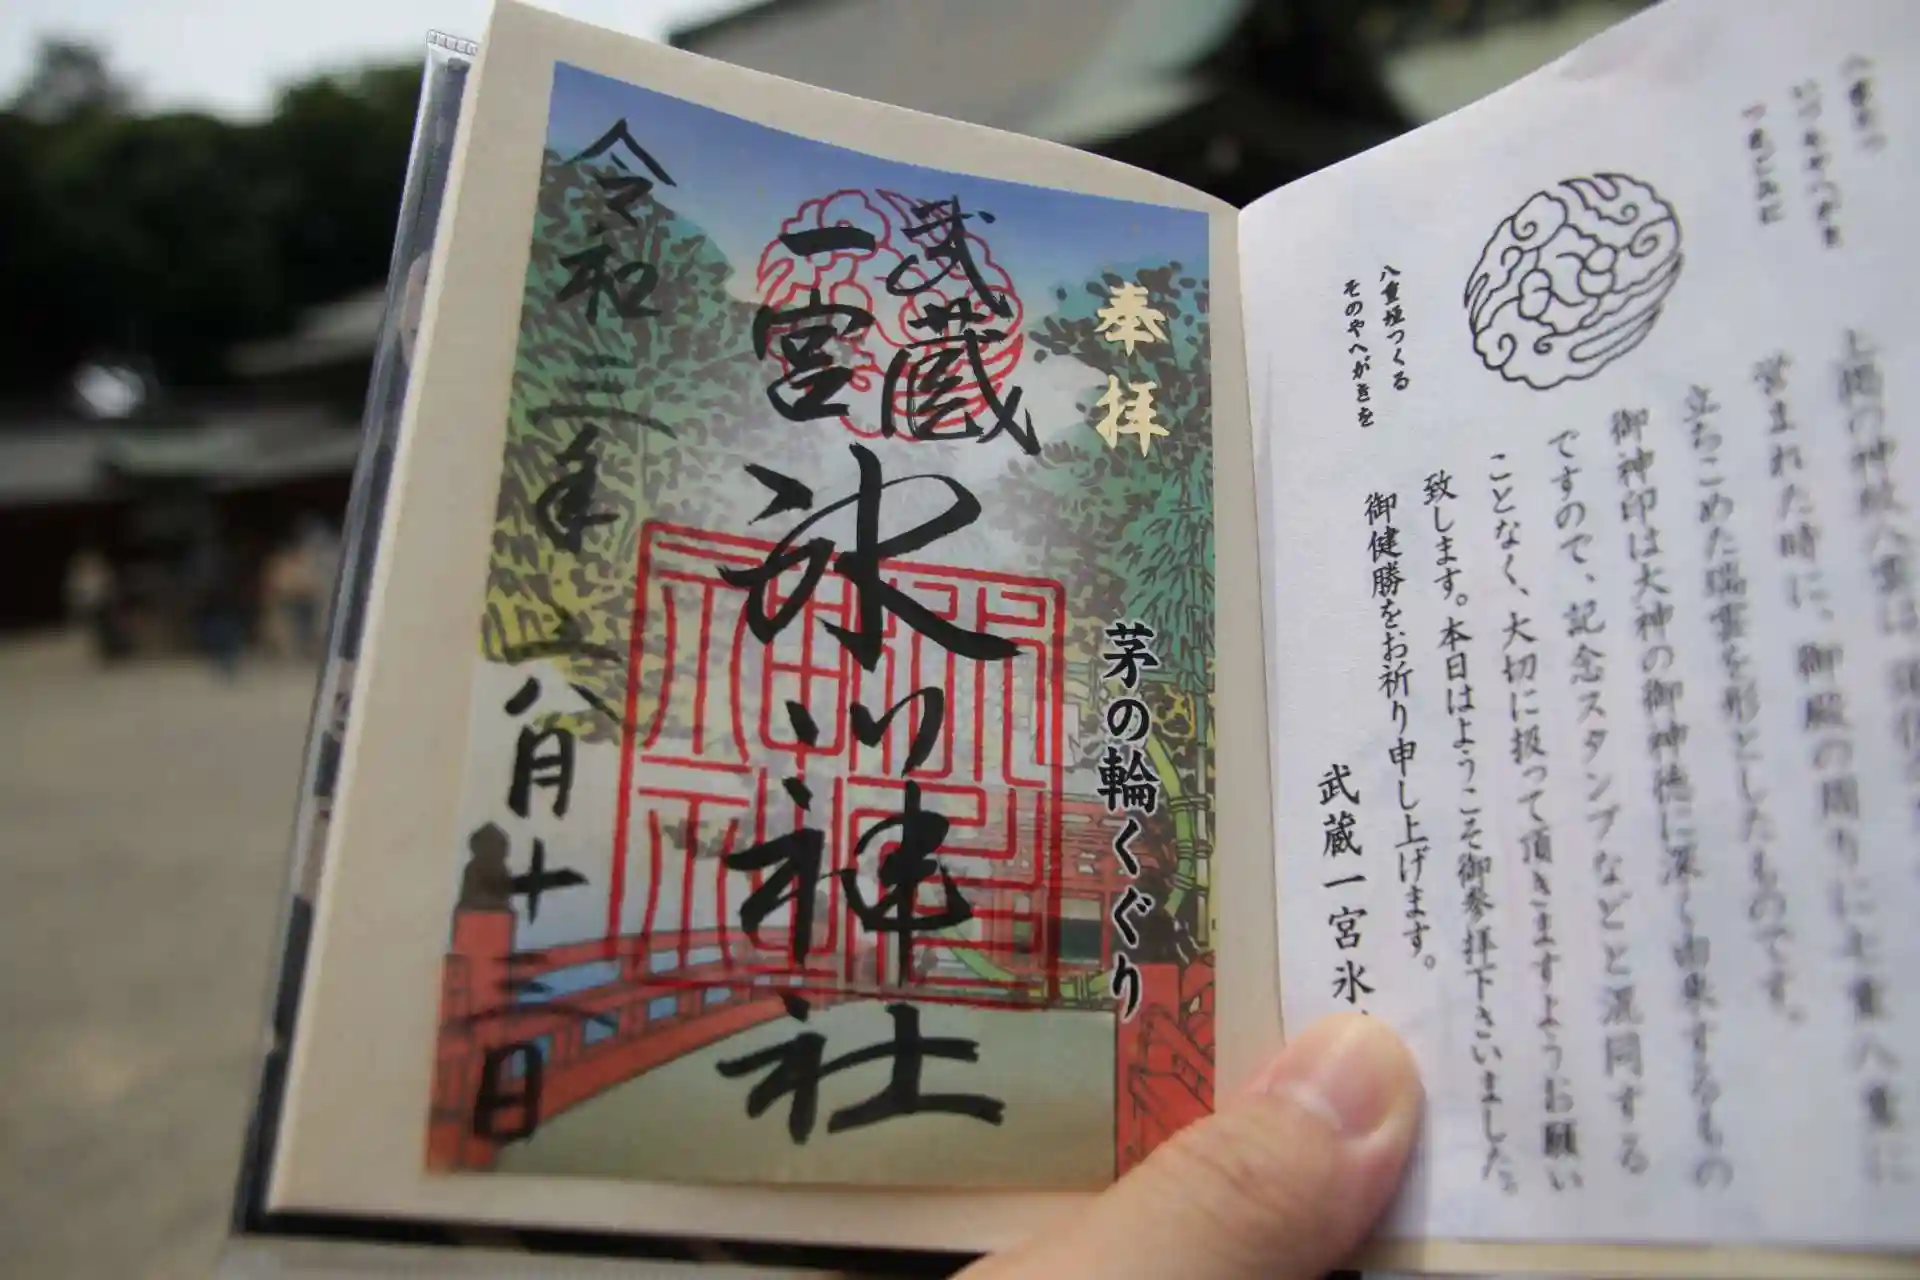 八雲たつ
つまごみに
八重垣つくる
そのやへがきを
上掲の神紋八雲は
営まれた時に、御殿の周りに七重八重に
立ちこめた瑞雲を形としたものです。
御神印は大神の御神徳に深く由来するもの
ですので、記念スタンプなどと混同する
ことなく、大切に扱って頂きますようお願い
致します。本日はようこそ御参拝下さいました。
御健勝をお祈り申し上げます。
武蔵一宮氷
奉拝
茅の輪くぐり
武蔵
一宮
氷川神社
令和三年八月十日